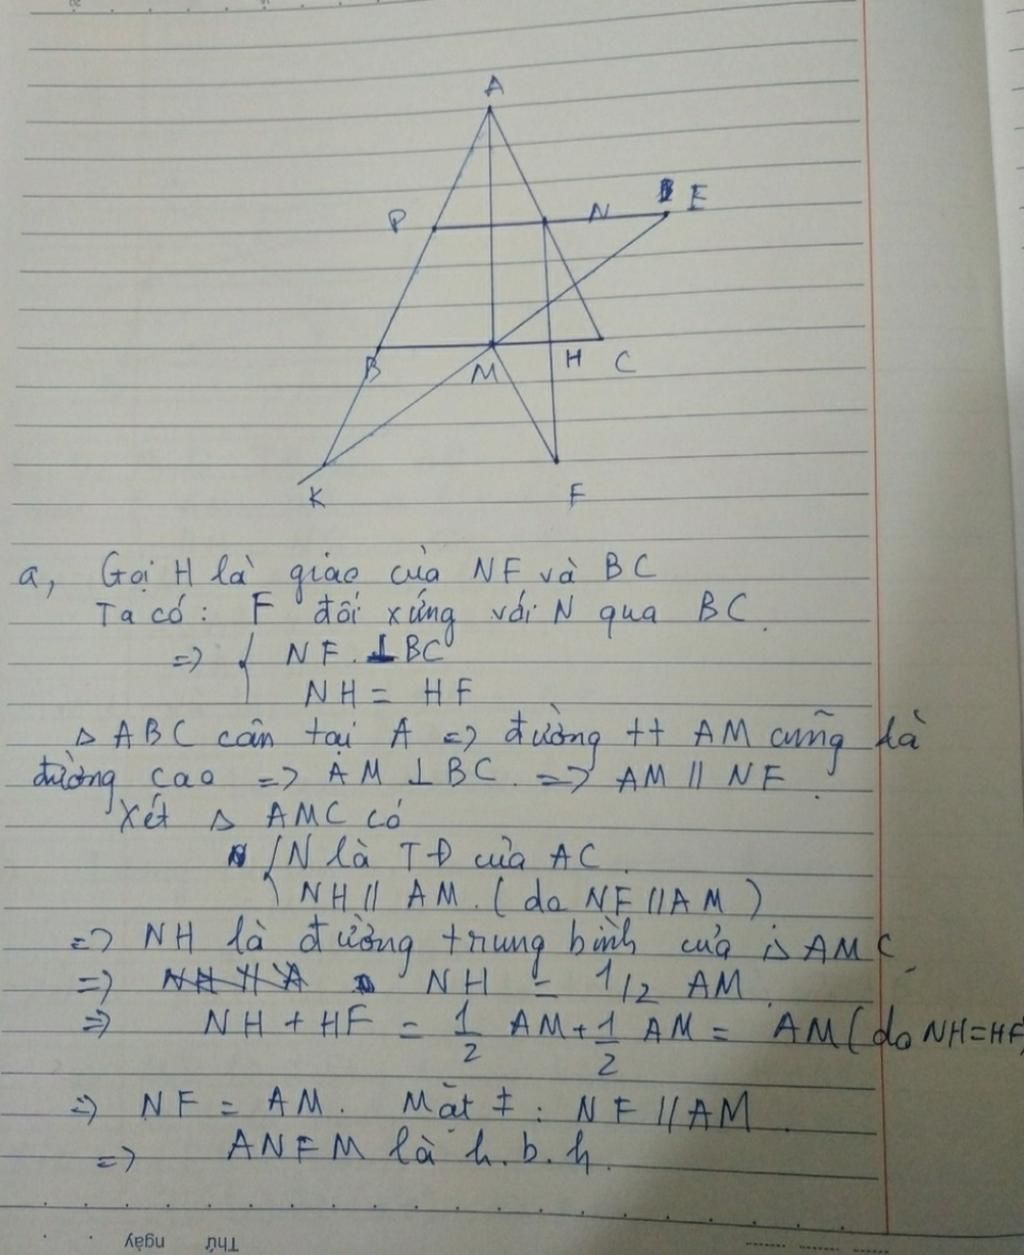 A
P
N
E
B
M
H
C
K
F
a, Gọi H là giao của NF và BC
Ta có: F đối xứng với N qua BC.
=> { NF ⊥ BC
NH = HF
Δ ABC cân tại A => đường tt AM cũng là
đường cao => AM ⊥ BC. => AM // NF.
Xét Δ AMC có
{ N là TĐ của AC.
NH // AM. (do NF // AM)
=> NH là đường trung bình của Δ AMC.
=> NH = 1/2 AM.
=> NH + HF = 1/2 AM + 1/2 AM = AM (do NH = HF)
=> NF = AM. Mặt ≠ : NF // AM.
=> ANFM là h.b.h.
Thứ ngày